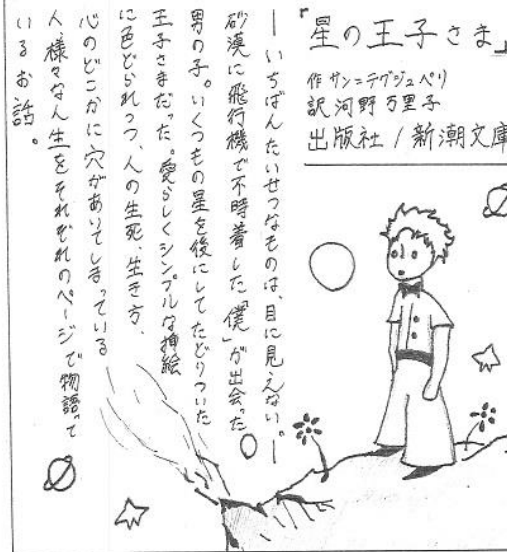 『星の王子さま』
作 サン=テグジュペリ
訳 河野万里子
出版社/新潮文庫
―いちばんたいせつなものは、目に見えない。―
砂漠に飛行機で不時着した「僕」が出会った
男の子。いくつもの星を後にしてたどりついた
王子さまだった。愛らしくシンプルな挿絵
に色どられつつ、人の生死、生き方、
心のどこかに穴があいてしまっている
人、様々な人生をそれぞれのページで物語って
いるお話。